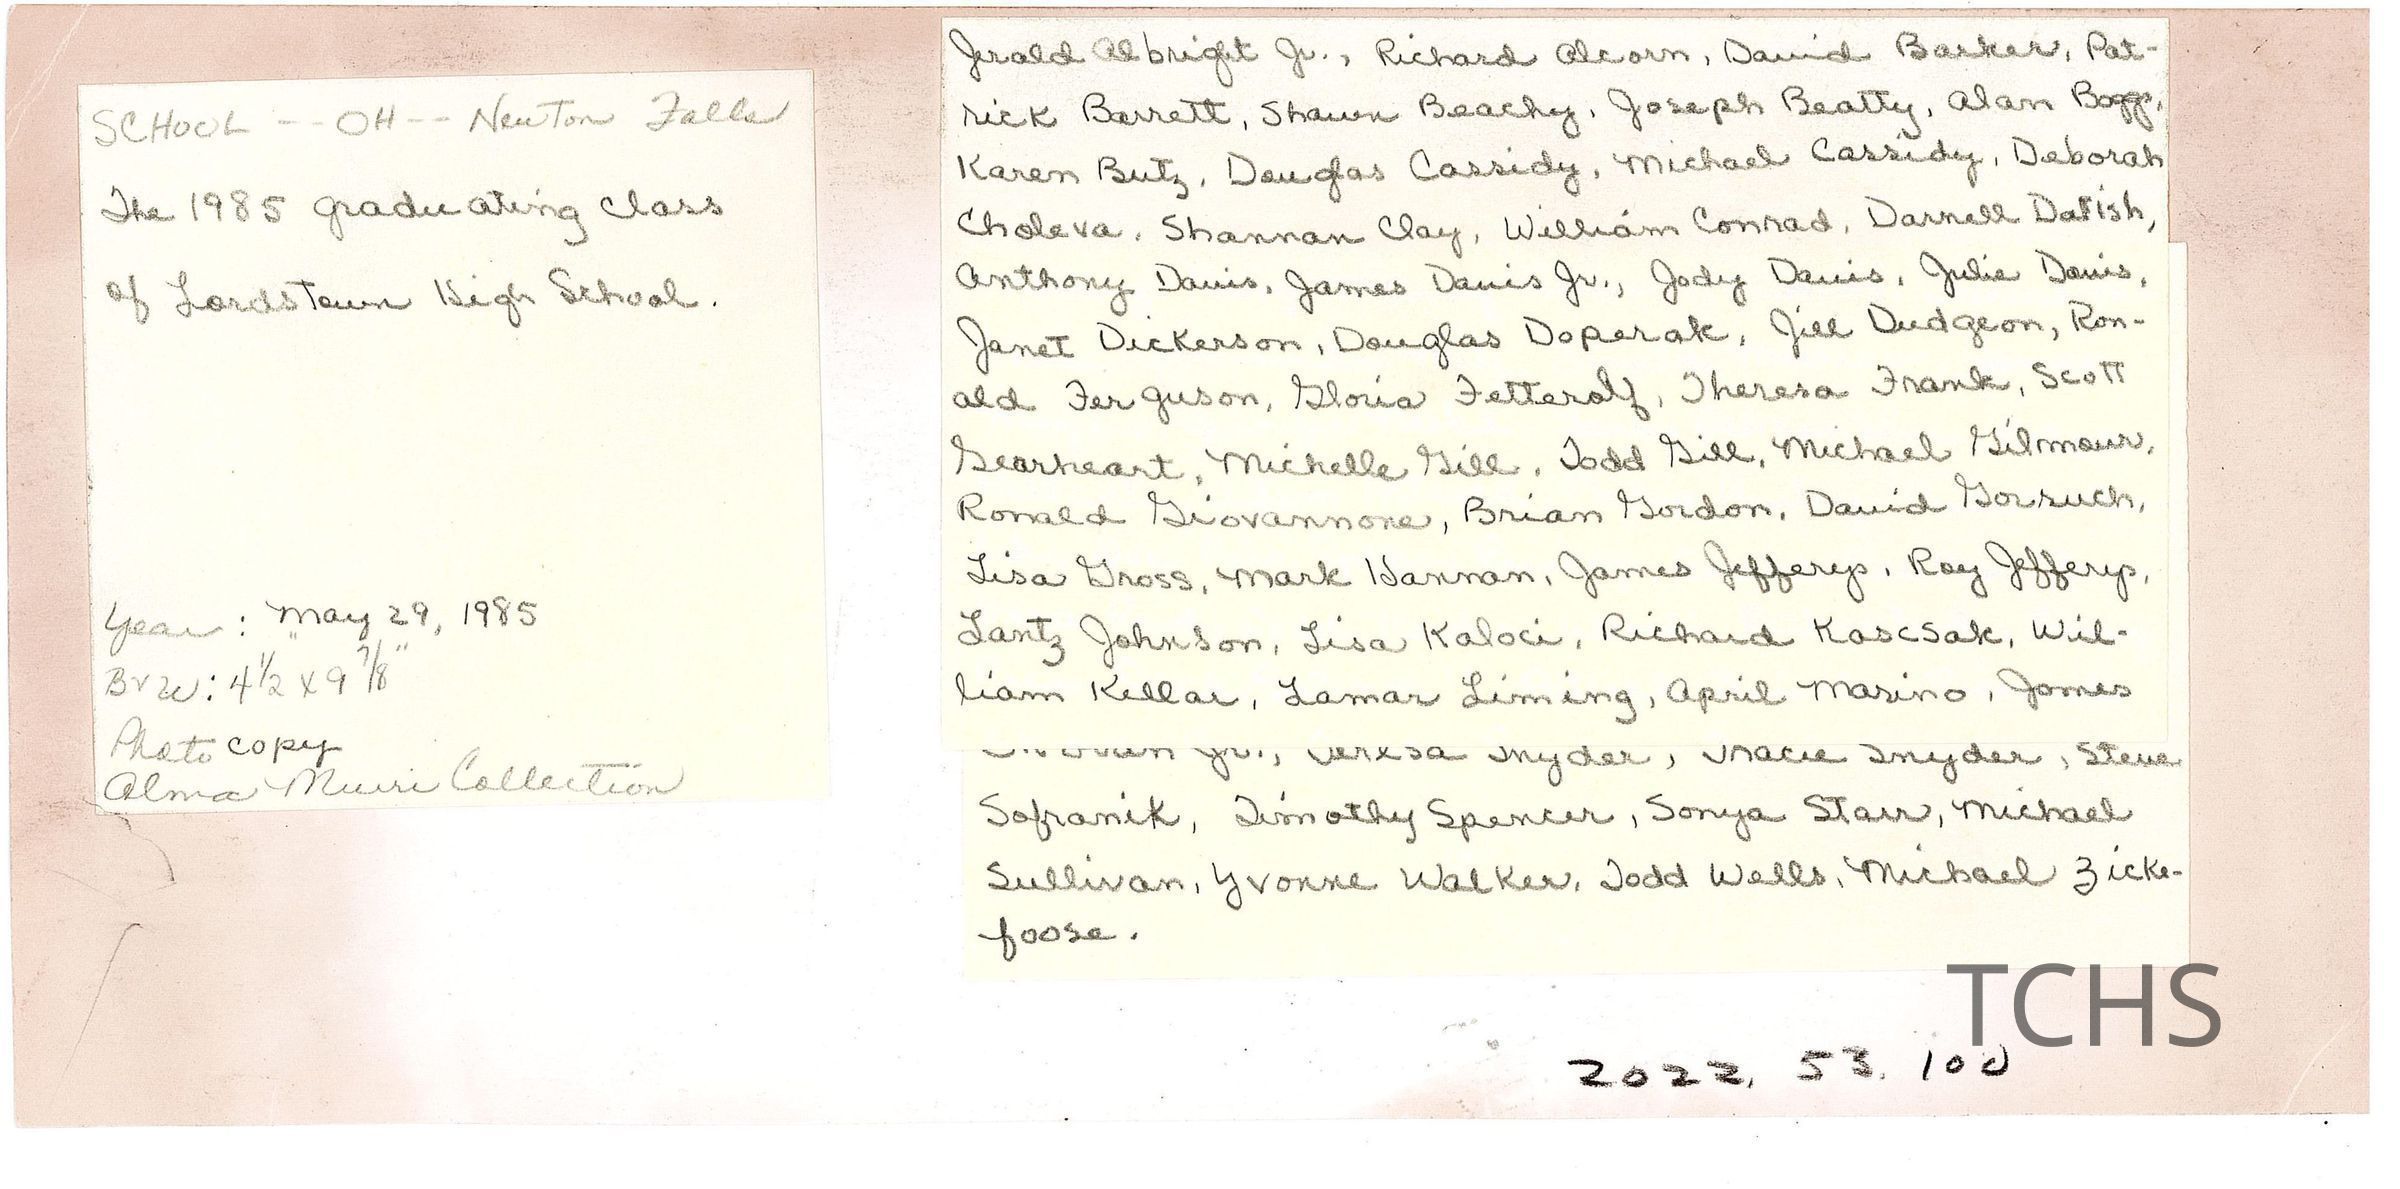 SCHOOL -- OH -- Newton Falls
The 1985 graduating class
of Lordstown High School.
Year: May 29, 1985
B+W: 4 1/2 x 9 7/8"
Photo copy
Alma Muiri Collection
Jerald Albright Jr., Richard Alcorn, David Barker, Pat-
rick Barrett, Shawn Beachy, Joseph Beatty, Alan Boggs,
Karen Butz, Douglas Cassidy, Michael Cassidy, Deborah
Choleva, Shannan Clay, William Conrad, Darnell Datish,
Anthony Davis, James Davis Jr., Jody Davis, Julie Davis,
Janet Dickerson, Douglas Doperak, Jill Dudgeon, Ron-
ald Ferguson, Gloria Fetterolf, Theresa Frank, Scott
Gearheart, Michelle Gill, Todd Gill, Michael Gilmour,
Ronald Giovannone, Brian Gordon, David Gorsuch,
Lisa Gross, Mark Hannan, James Jefferys, Ray Jefferys,
Lantz Johnson, Lisa Kaloci, Richard Kascsak, Wil-
liam Kellar, Lamar Liming, April Marino, James
Jr., Teresa Snyder, Tracie Snyder, Steve
Sofranik, Timothy Spencer, Sonya Starr, Michael
Sullivan, Yvonne Walker, Todd Wells, Michael Zicke-
foose.
TCHS
2022. 53. 100